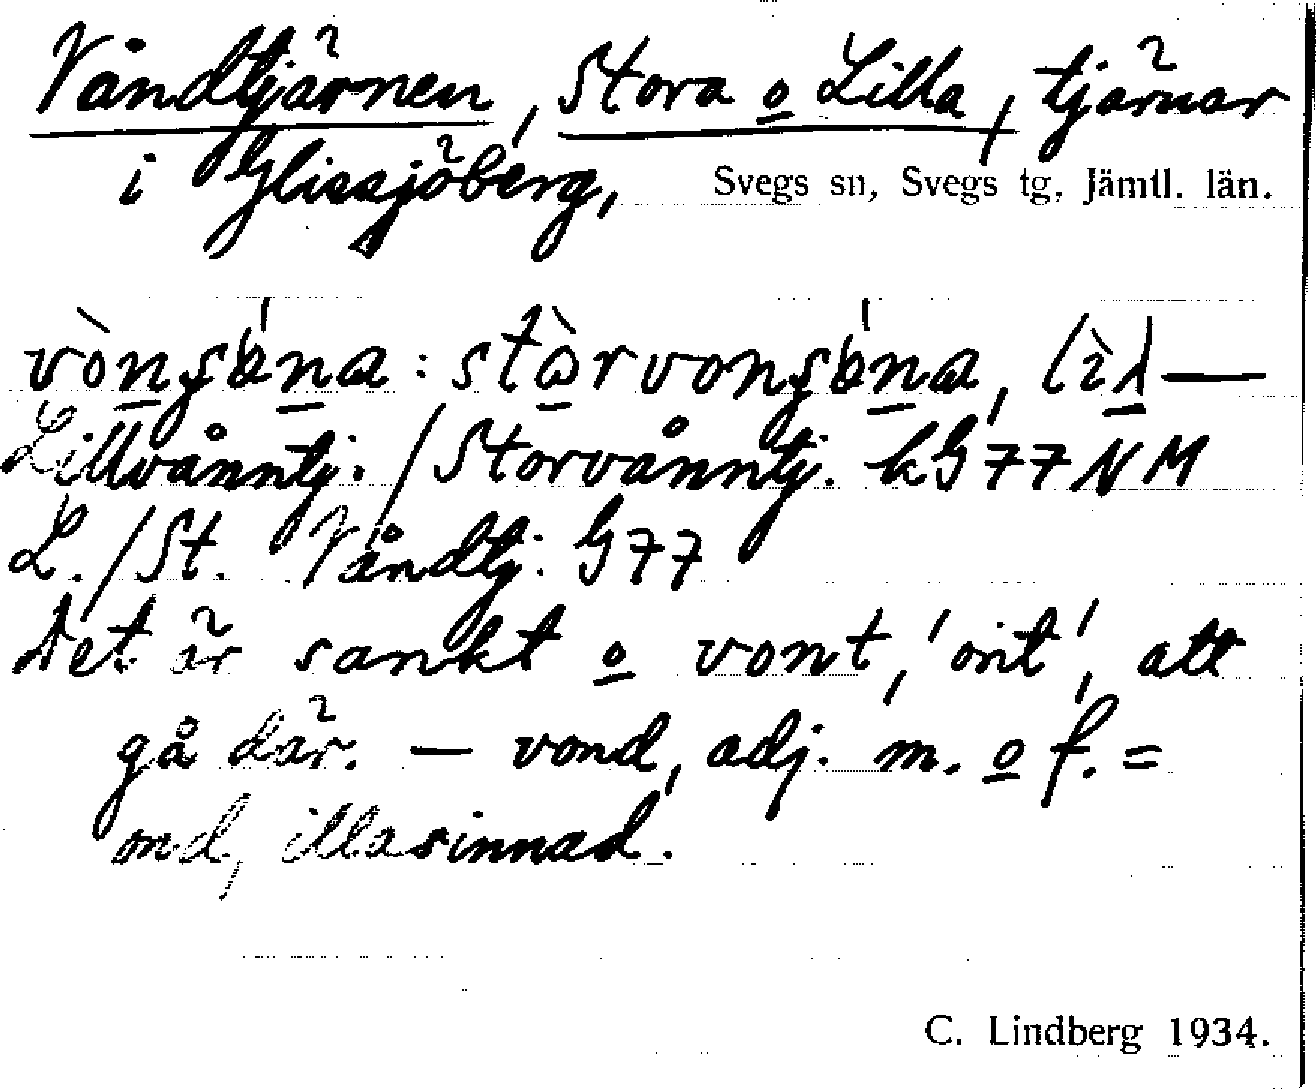 Våndtjärnen, Stora o Lilla, tjärnar
i Glissjöberg, Svegs sn, Svegs tg, Jämtl. län.
Lillvånntj. / Storvånntj. kG77NM
L. / St. Våndtj. G77
Det är sankt o vont, 'ont', att
gå där. — vond, adj. m. o f. =
ond, illasinnad.
C. Lindberg 1934.